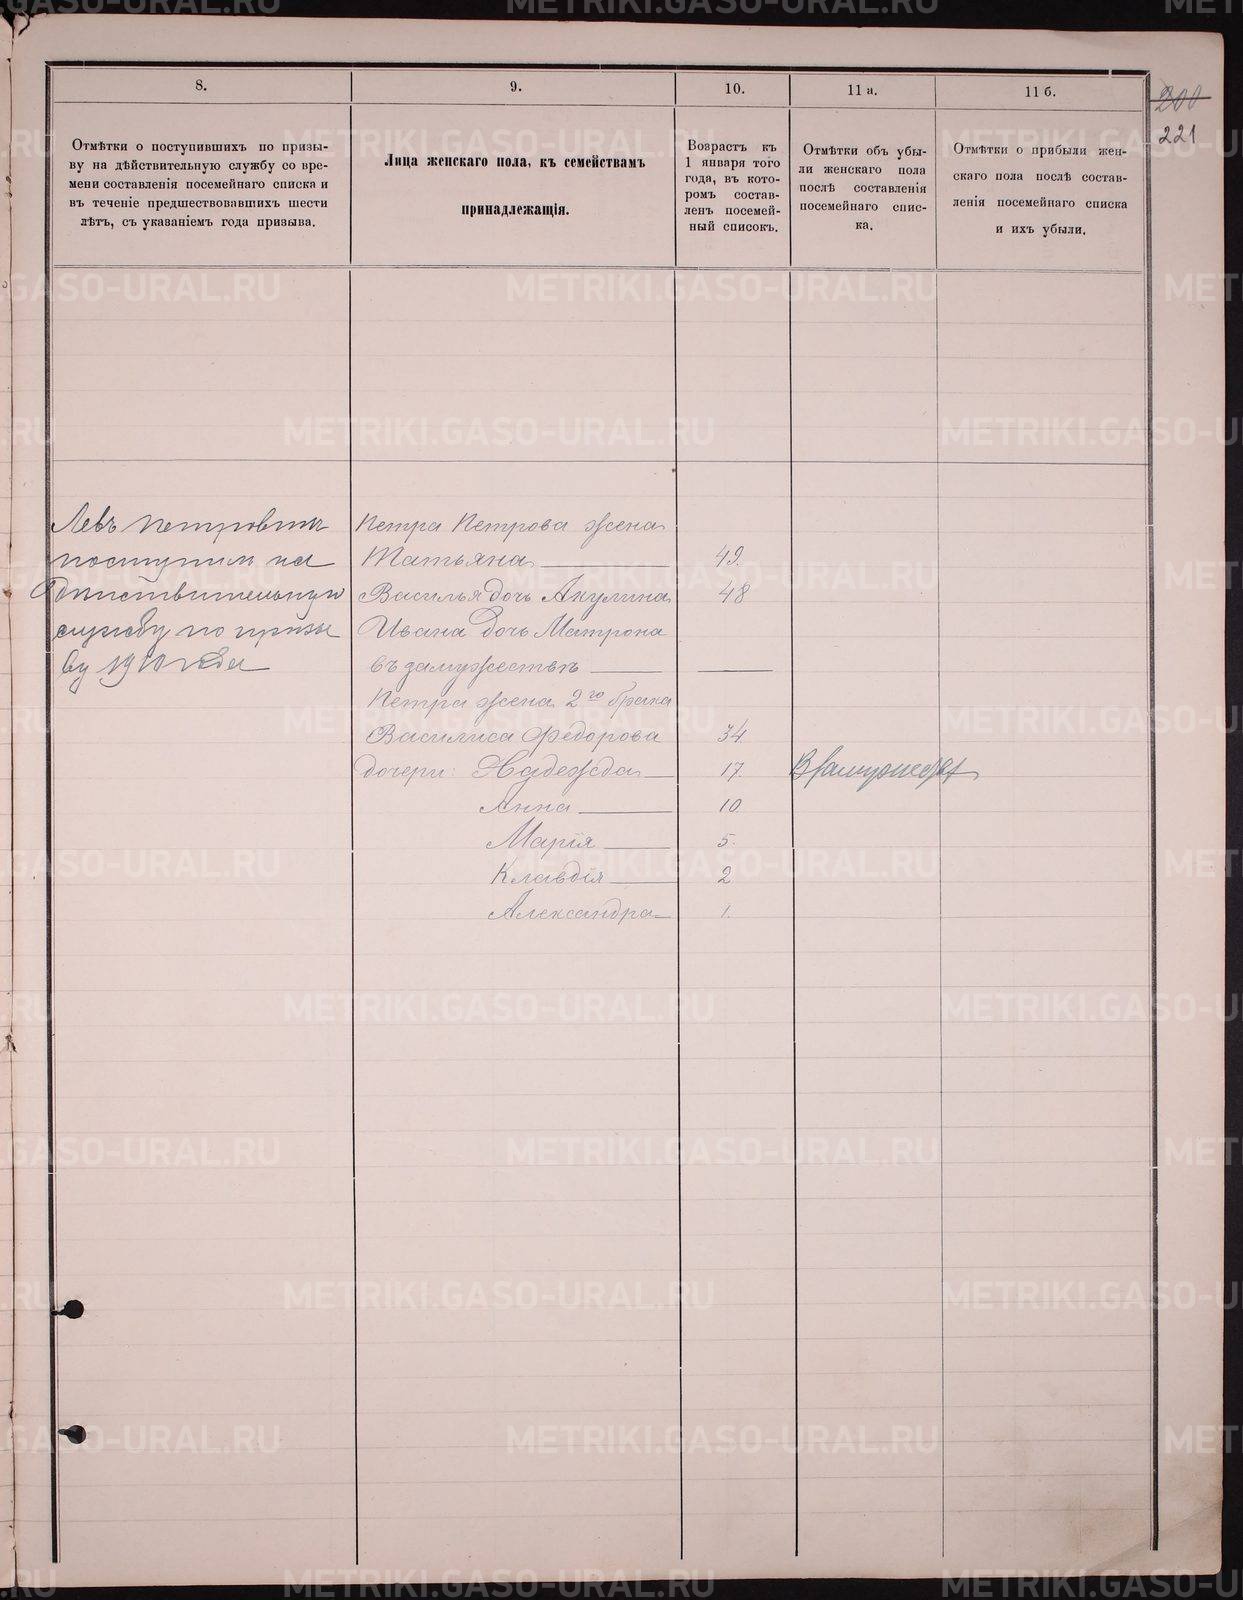 8.
9.
10.
11 а.
11 б.
200
221
Отмѣтки о поступившихъ по призы-
ву на дѣйствительную службу со вре-
мени составленія посемейнаго списка и
въ теченіе предшествовавшихъ шести
лѣтъ, съ указаніемъ года призыва.
Лица женскаго пола, къ семействамъ
принадлежащія.
Возрастъ къ
1 января того
года, въ кото-
ромъ состав-
ленъ посемей-
ный списокъ.
Отмѣтки объ убы-
ли женскаго пола
послѣ составленія
посемейнаго спис-
ка.
Отмѣтки о прибыли жен-
скаго пола послѣ состав-
ленія посемейнаго списка
и ихъ убыли.
Левъ Петровичъ
поступилъ на
дѣйствительную
службу по призы
ву 1910 года
Петра Петрова жена
Татьяна 49.
Василья дочь Акулина 48
Ивана дочь Матрона
въ замужествѣ
Петра жена 2го брака
Василиса Федорова 34
дочери: Надежда 17. В замужествѣ
Анна 10.
Марія 5.
Клавдія 2
Александра 1.
METRIKI.GASO-URAL.RU